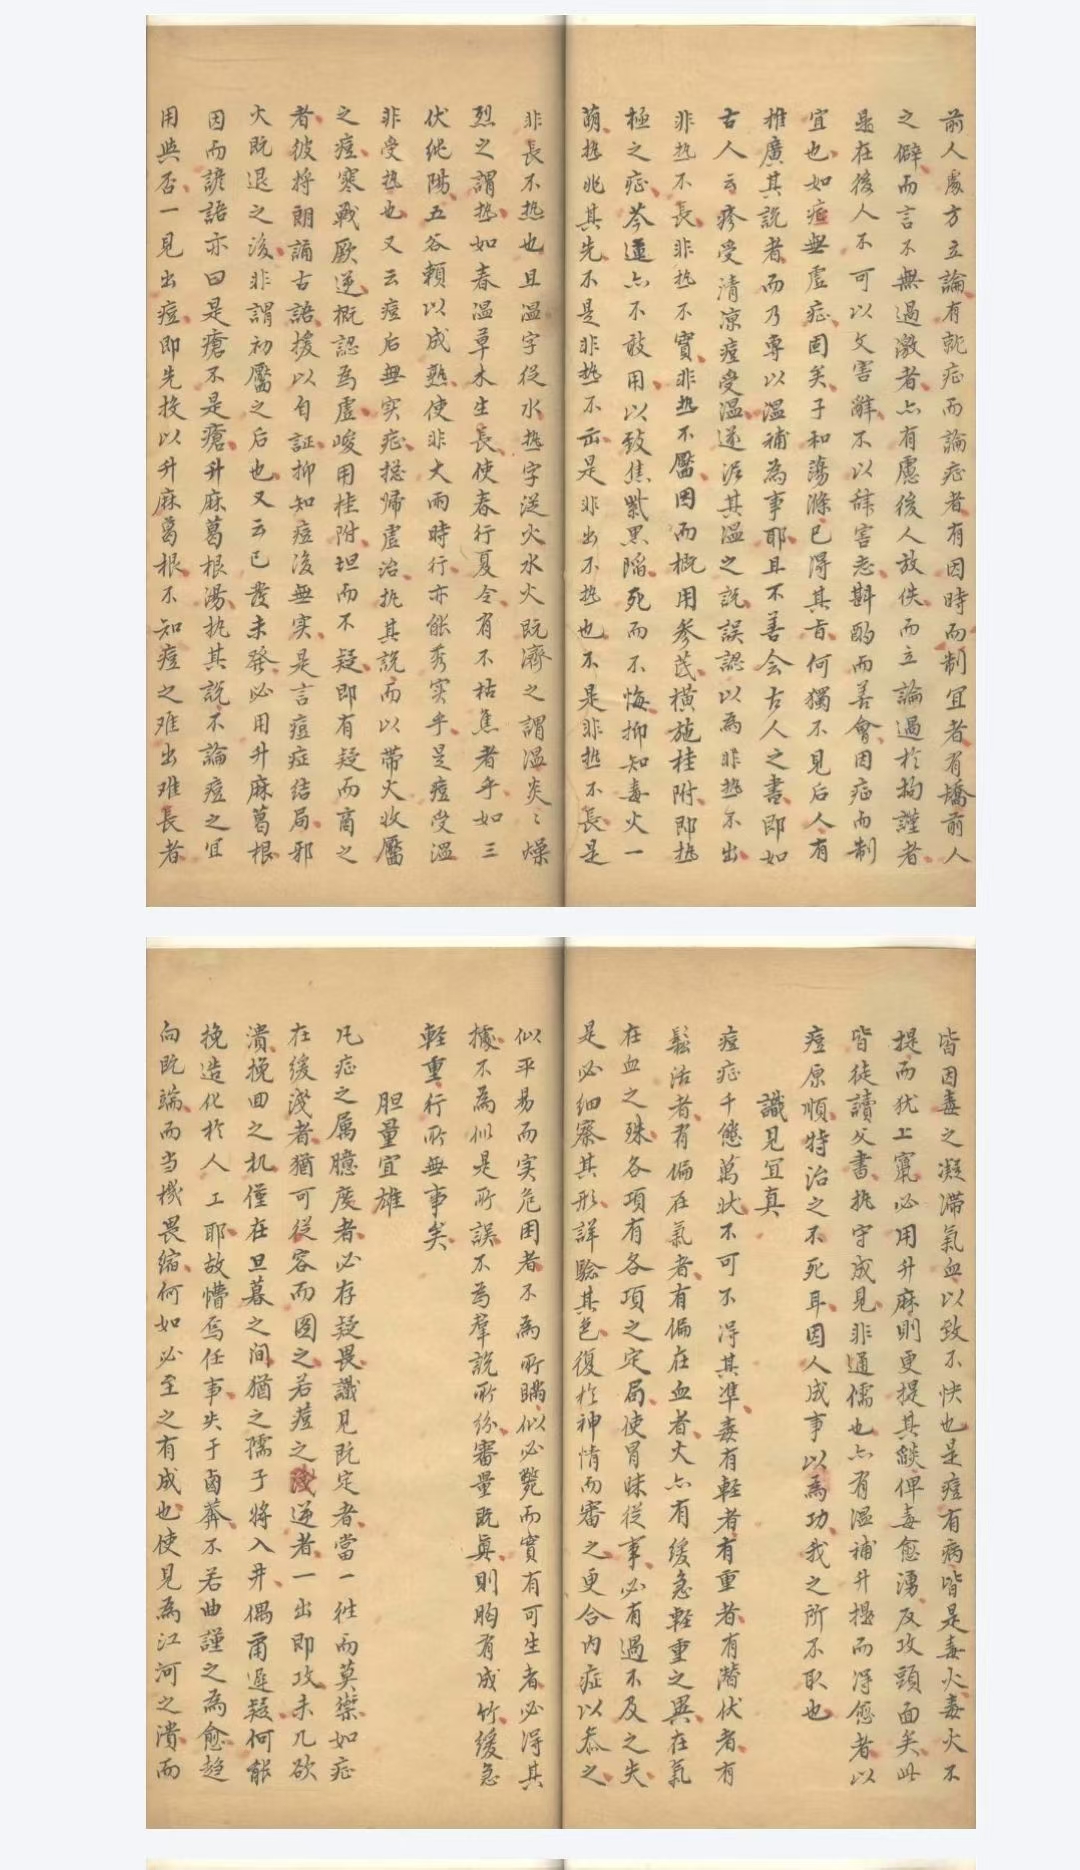 前人處方立論有就症而論症者有因時而制宜者有矯前人
之僻而言不無過激者亦有慮後人放佚而立論過於拘謹者
是在後人不可以文害辭不以辞害志斟酌而善會因症而制
宜也如痘無虛症固矣子和蕩滌已得其旨何獨不見后人有
推廣其說者而乃專以溫補為事耶且不善会古人之書即如
古人云疹受清凉痘受溫遂泥其溫之說誤認以為非热不出
非热不長非热不實非热不靨因而概用参芪橫施桂附即热
極之症芩連亦不敢用以致焦紫黑陷死而不悔抑知毒火一
萌热兆其先不是非热不出是非出不热也不是非热不長是
非長不热也且溫字從水热字從火水火既濟之謂溫炎〻燥
烈之謂热如春溫草木生長使春行夏令有不枯焦者乎如三
伏純陽五谷賴以成熟使非大雨時行亦能秀实乎是痘受溫
非受热也又云痘后無实症捴帰虛治执其說而以帶火收靨
之痘寒戰厥逆概認為虛峻用桂附坦而不疑即有疑而商之
者彼将朗誦古語援以自証抑知痘後無实是言痘症結局邪
火既退之後非謂初靨之后也又云已發未發必用升麻葛根
因而諺語亦曰是瘡不是瘡升麻葛根湯执其說不論痘之宜
用與否一見出痘即先投以升麻葛根不知痘之难出难長者
皆因毒之凝滞氣血以致不快也是痘有病皆是毒火毒火不
提而犹上竄必用升麻則更提其燄俾毒愈湧反攻頭面矣此
皆徒讀父書执守成見非通儒也亦有溫補升提而得愈者以
痘原順特治之不死耳因人成事以為功我之所不取也
識見宜真
痘症千態萬狀不可不得其準毒有軽者有重者有潜伏者有
鬆活者有偏在氣者有偏在血者火亦有緩急軽重之異在氣
在血之殊各項有各項之定局使冒昧從事必有過不及之失
是必细察其形詳驗其色復於神情而審之更合内症以叅之
似平易而实危困者不為所瞞似必斃而實有可生者必得其
據不為似是所誤不為羣説所紛審量既真則胸有成竹緩急
軽重行所無事矣
胆量宜雄
凡症之属臆度者必存疑畏識見既定者當一往而莫禦如症
在缓淺者猶可從容而图之若痘之逆者一出即攻未几欲
潰挽回之机僅在旦暮之间猶之孺子将入井偶爾遲疑何能
挽造化於人工耶故懵焉任事失于鹵莽不若曲謹之為愈趋
向既端而当機畏缩何如必至之有成也使見為江河之潰而